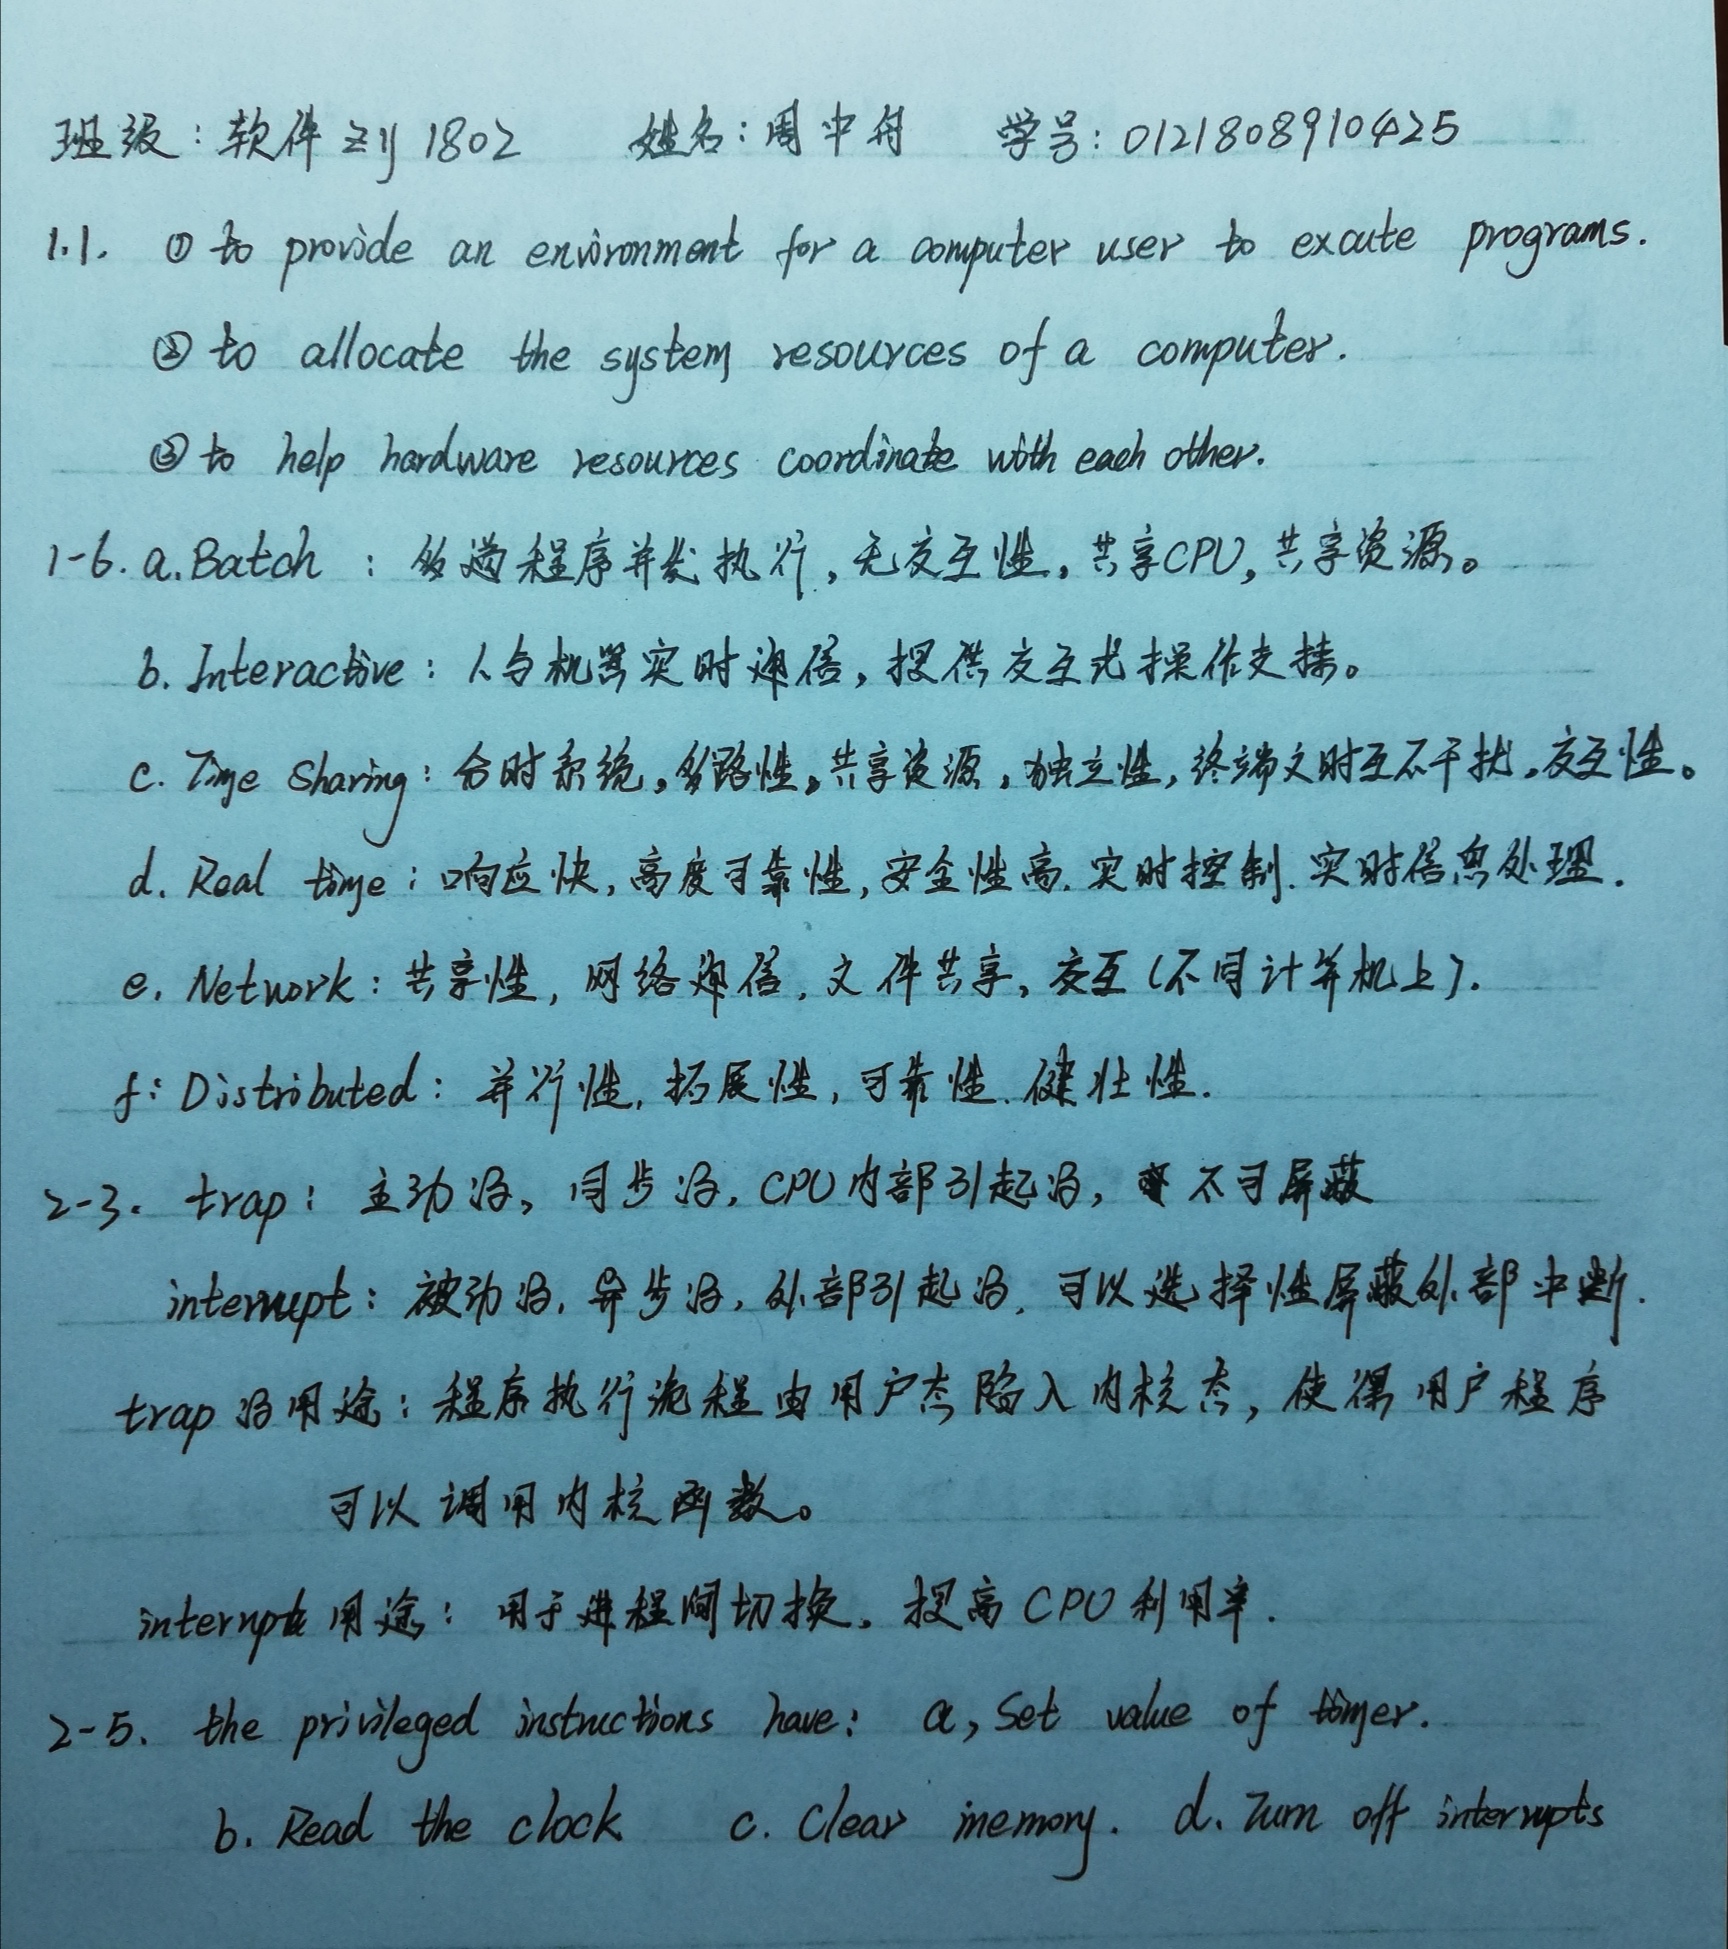 班级：软件zy1802 姓名：周中舟 学号：0121808910425
1.1. ① to provide an environment for a computer user to excute programs.
② to allocate the system resources of a computer.
③ to help hardware resources coordinate with each other.
1-6. a. Batch ：多道程序并发执行，无交互性，共享CPU，共享资源。
b. Interactive：人与机器实时通信，提供交互式操作支持。
c. Time Sharing：分时系统，多路性，共享资源，独立性，终端文时互不干扰，交互性。
d. Real time：响应快，高度可靠性，安全性高，实时控制.实时信息处理.
e. Network：共享性，网络通信，文件共享，交互（不同计算机上）.
f：Distributed：并行性，拓展性，可靠性.健壮性.
2-3. trap：主动的，同步的，CPU内部引起的，不可屏蔽
interrupt：被动的，异步的，外部引起的，可以选择性屏蔽外部中断.
trap的用途：程序执行流程由用户态陷入内核态，使得用户程序
可以调用内核函数。
interrupt用途：用于进程间切换，提高CPU利用率.
2-5. the privileged instructions have: a, Set value of timer.
b. Read the clock c. Clear memory. d. Turn off interrupts